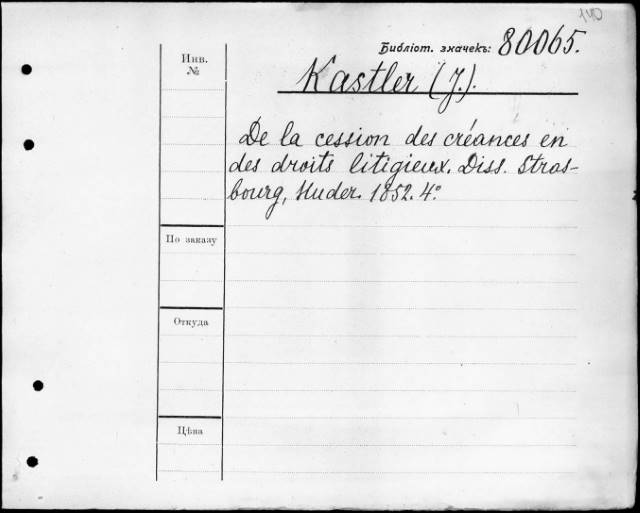 140
Библіот. значекъ: 80065.
Инв.
№
Kastler (J.).
De la cession des créances en
des droits litigieux. Diss. Stras-
bourg, Huder. 1852. 4°
По заказу
Откуда
Цѣна